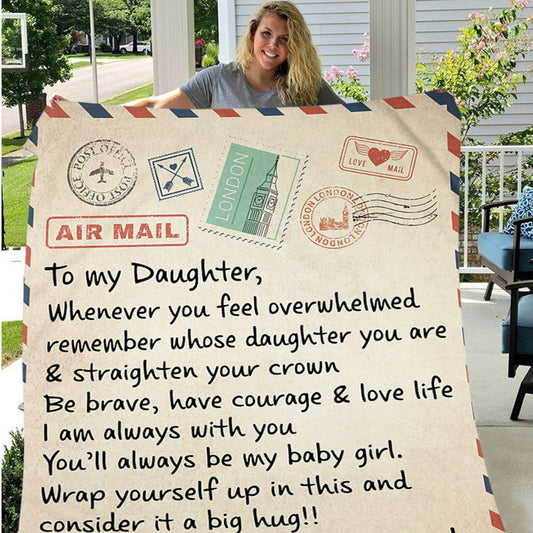 POST OFFICE POST
LONDON
LOVE
MAIL
LONDON LONDON
LONDON
AIR MAIL
To my Daughter,
Whenever you feel overwhelmed
remember whose daughter you are
& straighten your crown
Be brave, have courage & love life
I am always with you
You'll always be my baby girl.
Wrap yourself up in this and
consider it a big hug!!